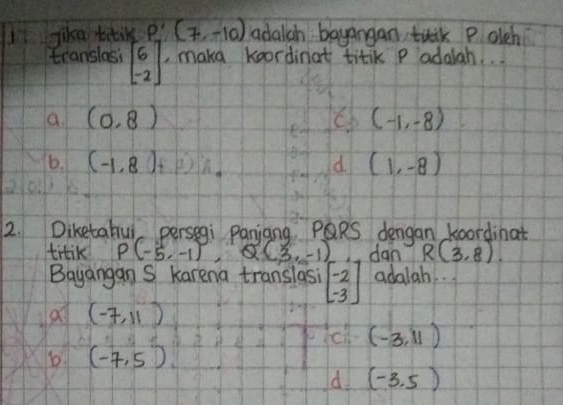 1. Jika titik P' (7,-10) adalah bayangan titik P oleh
translasi [6 -2], maka koordinat titik P adalah...
a. (0,8)
c. (-1,-8)
b. (-1,8)
d. (1,-8)
2. Diketahui persegi panjang PQRS dengan koordinat
titik P(-5,-1), Q(3,-1), dan R(3,8).
Bayangan S karena translasi [-2 -3] adalah...
a. (-7,11)
c. (-3,11)
b. (-7,5)
d. (-3.5)